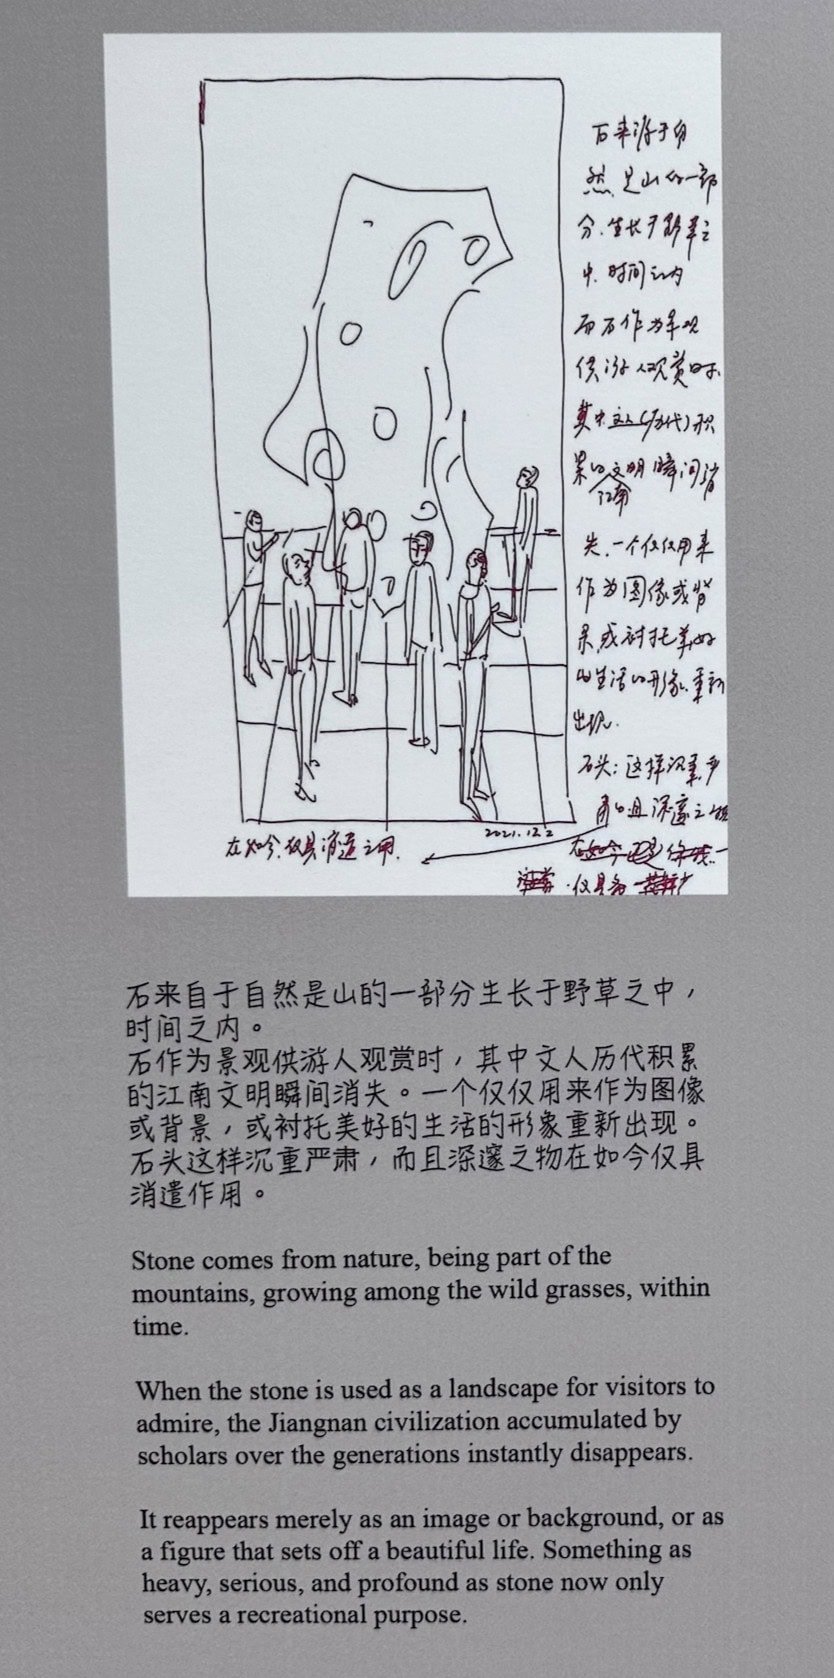 石来源于自
然.是山的一部
分.生长于野草之
中.时间之内
而石作为景观
供游人观赏时.
其中文人(历代)积
累的文明瞬间消
江南
失.一个仅仅用来
作为图像或背
景,或衬托美好
的生活的形象.重新
出现.
石头:这样沉重.严
肃的且深邃之物
2021.12.2
在如今.仅具消遣之用.
在如今
仅具备
石来自于自然是山的一部分生长于野草之中，
时间之内。
石作为景观供游人观赏时，其中文人历代积累
的江南文明瞬间消失。一个仅仅用来作为图像
或背景，或衬托美好的生活的形象重新出现。
石头这样沉重严肃，而且深邃之物在如今仅具
消遣作用。
Stone comes from nature, being part of the
mountains, growing among the wild grasses, within
time.
When the stone is used as a landscape for visitors to
admire, the Jiangnan civilization accumulated by
scholars over the generations instantly disappears.
It reappears merely as an image or background, or as
a figure that sets off a beautiful life. Something as
heavy, serious, and profound as stone now only
serves a recreational purpose.